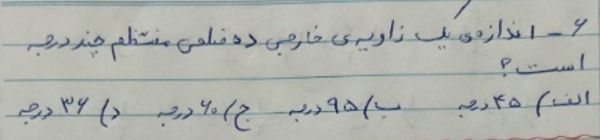 ۶ - اندازه‌ی یک زاویه‌ی خارجی ده ضلعی منتظم چند درجه
است؟
الف) ۴۵ درجه ب) ۹۵ درجه ج) ۶۰ درجه د) ۳۶ درجه